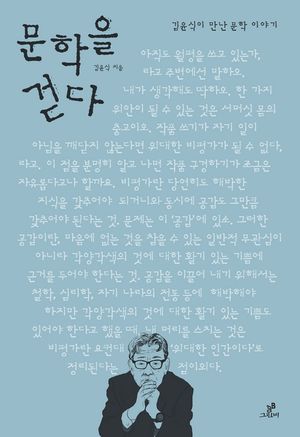 김윤식이 만난 문학 이야기
문학을
걷다
김윤식 지음
아직도 월평을 쓰고 있는가,
라고 주변에서 말하오.
내가 생각해도 딱하오. 한 가지
위안이 될 수 있는 것은 서머싯 몸의
충고이오. 작품 쓰기가 자기 일이
아님을 깨닫지 않는다면 위대한 비평가가 될 수 없다,
라고. 이 점을 분명히 알고 나면 작품 구경하기가 조금은
자유롭다고나 할까요. 비평가란 당연히도 해박한
지식을 갖추어야 되거니와 동시에 공감도 그만큼
갖추어야 된다는 것. 문제는 이 '공감'에 있소. 그러한
공감이란, 마음에 없는 것을 참을 수 있는 일반적 무관심이
아니라 각양각색의 것에 대한 활기 있는 기쁨에
근거를 두어야 한다는 것. 공감을 이끌어 내기 위해서는
철학, 심리학, 자기 나라의 전통 등에 해박해야
하지만 각양각색의 것에 대한 활기 있는 기쁨도
있어야 한다고 했을 때, 내 머리를 스치는 것은
비평가란 요컨대 '위대한 인간이다'로
정리된다는 점이외다.
그린비